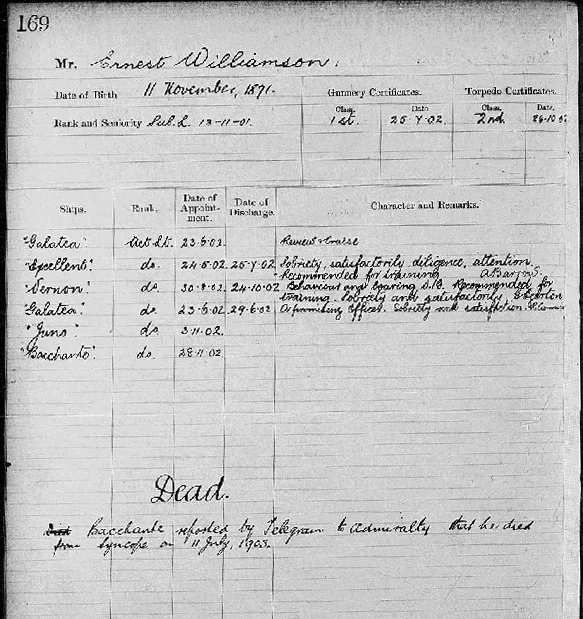 169
Mr. Ernest Williamson.
Date of Birth 11 November, 1871. Gunnery Certificates. Torpedo Certificates.
Class. Date Class. Date.
Rank and Seniority Sub. L. 13-11-01. 1st. 25.7.02. 2nd. 24.10.02
Ships. Rank. Date of Appoint- ment. Date of Discharge. Character and Remarks.
"Galatea". Act. Lt. 23.6.02. Review
"Excellent". do. 24.5.02. 25.7.02. Sobriety, satisfactorily, diligence, attention.
Recommended for training
"Vernon". do. 30.8.02. 24.10.02 Behaviour and bearing Recommended for
training. Sobriety and satisfactorily Egerton
"Galatea". do. 23.6.02. 29.6.02 A promising Officer. Sobriety and satisfaction.
"Juno" do. 3.11.02.
"Bacchante". do. 28.11.02
Dead.
Died Bacchante reported by Telegram to Admiralty that he died
from Syncope on 11 July, 1903.